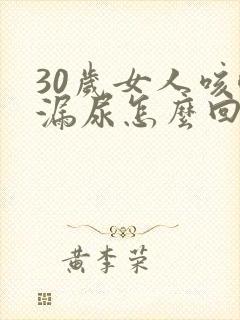 30歲女人咳
漏尿怎麼回
黃李荣